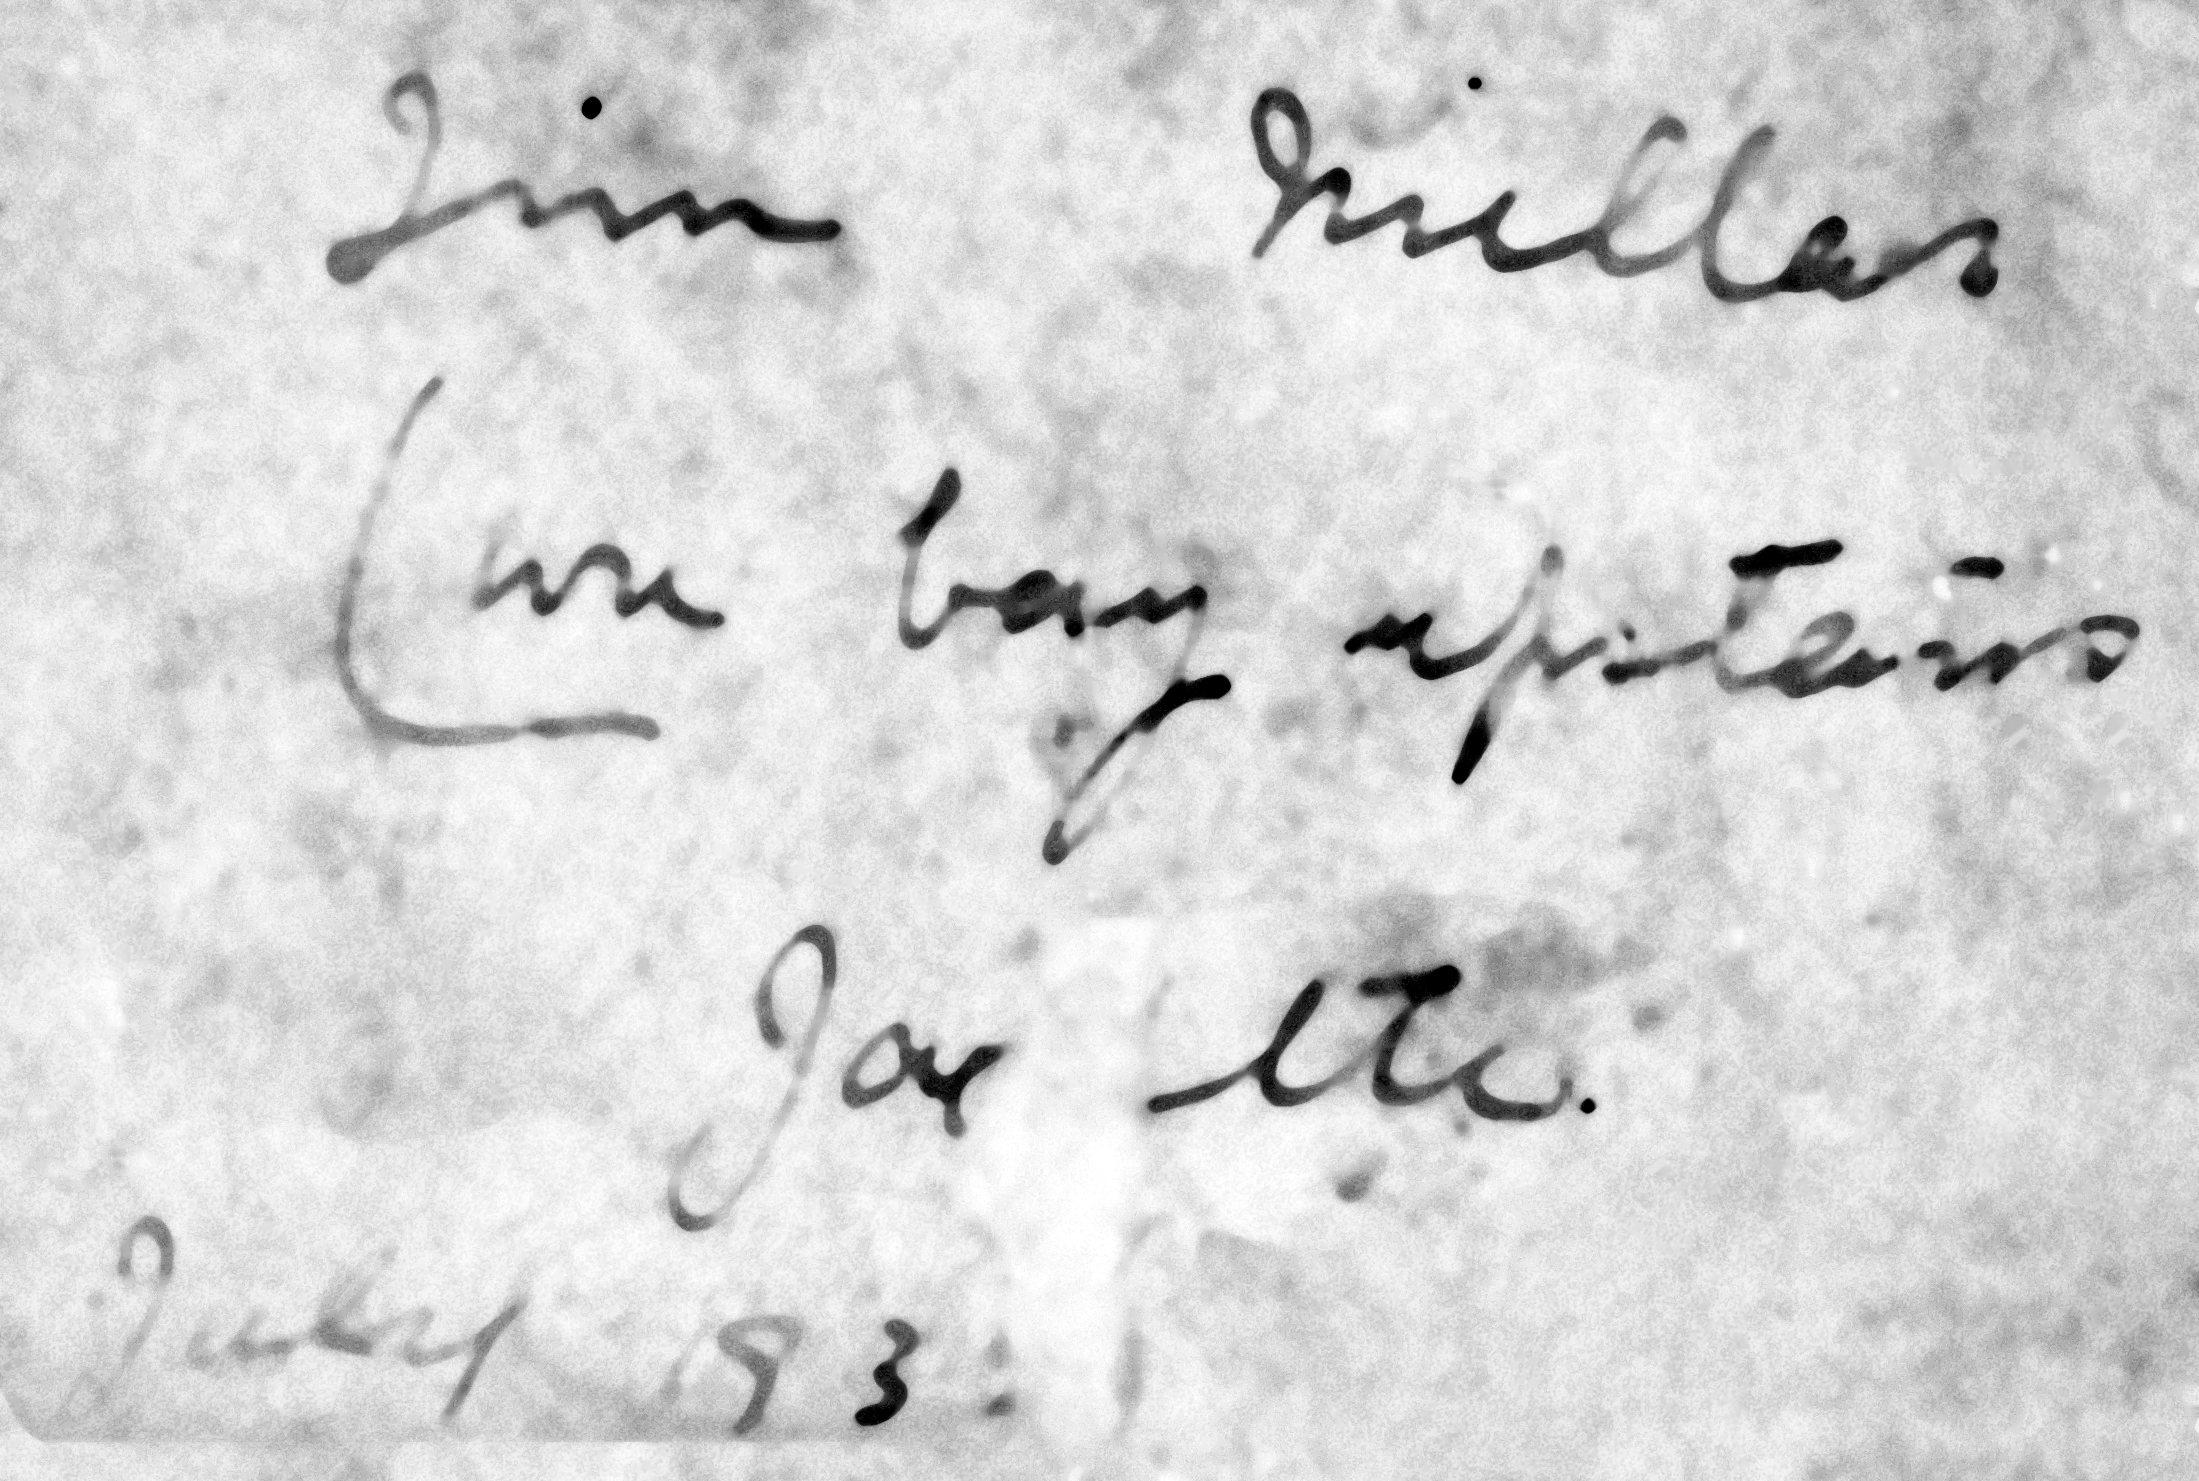 Jim Miller
(we bay upstairs
Joy etc.
July 193